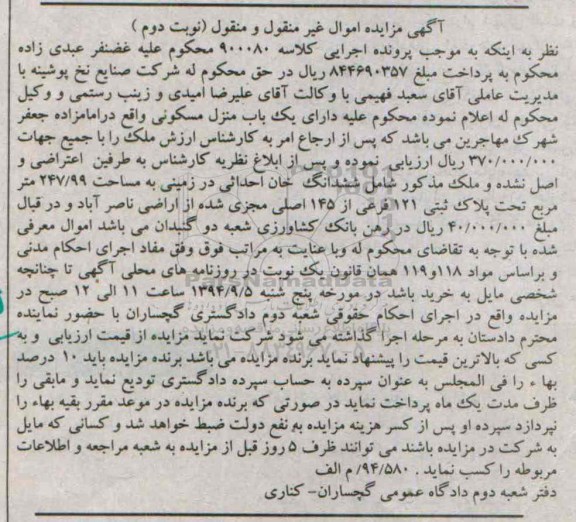 آگهی مزایده اموال غیر منقول و منقول (نوبت دوم )
نظر به اینکه به موجب پرونده اجرایی کلاسه ۹۰۰۰۸۰ محکوم علیه غضنفر عبدی زاده
محکوم به پرداخت مبلغ ۸۴۴۶۹۰۳۵۷ ریال در حق محکوم له شرکت صنایع نخ پوشینه با
مدیریت عاملی آقای سعید فهیمی با وکالت آقای علیرضا امیدی و زینب رستمی و وکیل
محکوم له اعلام نموده محکوم علیه دارای یک باب منزل مسکونی واقع درامامزاده جعفر
شهرک مهاجرین می باشد که پس از ارجاع امر به کارشناس ارزش ملک را با جمیع جهات
۳۷۰/۰۰۰/۰۰۰ ریال ارزیابی نموده و پس از ابلاغ نظریه کارشناس به طرفین اعتراضی و
اصل نشده و ملک مذکور شامل ششدانگ خان احداثی در زمینی به مساحت ۲۴۷/۹۹ متر
مربع تحت پلاک ثبتی ۱۲۱ فرعی از ۱۴۵ اصلی مجزی شده از اراضی ناصر آباد و در قبال
مبلغ ۴۰/۰۰۰/۰۰۰ ریال در رهن بانک کشاورزی شعبه دو گنبدان می باشد اموال معرفی
شده با توجه به تقاضای محکوم له وبا عنایت به مراتب فوق وفق مفاد اجرای احکام مدنی
و براساس مواد ۱۱۸و۱۱۹ همان قانون یک نوبت در روزنامه های محلی آگهی تا چنانچه
شخصی مایل به خرید باشد در مورخه پنج شنبه ۱۳۹۴/۸/۵ ساعت ۱۱ الی ۱۲ صبح در
مزایده واقع در اجرای احکام حقوقی شعبه دوم دادگستری گچساران با حضور نماینده
محترم دادستان به مرحله اجرا گذاشته می شود شرکت نماید مزایده از قیمت ارزیابی و به
کسی که بالاترین قیمت را پیشنهاد نماید برنده مزایده می باشد برنده مزایده باید ۱۰ درصد
بهاء را فی المجلس به عنوان سپرده به حساب سپرده دادگستری تودیع نماید و مابقی را
ظرف مدت یک ماه پرداخت نماید در صورتی که برنده مزایده در موعد مقرر بقیه بهاء را
نپردازد سپرده او پس از کسر هزینه مزایده به نفع دولت ضبط خواهد شد و کسانی که مایل
به شرکت در مزایده باشند می توانند ظرف ۵ روز قبل از مزایده به شعبه مراجعه و اطلاعات
مربوطه را کسب نماید . ۹۴/۵۸۰/ م الف
دفتر شعبه دوم دادگاه عمومی گچساران- کناری